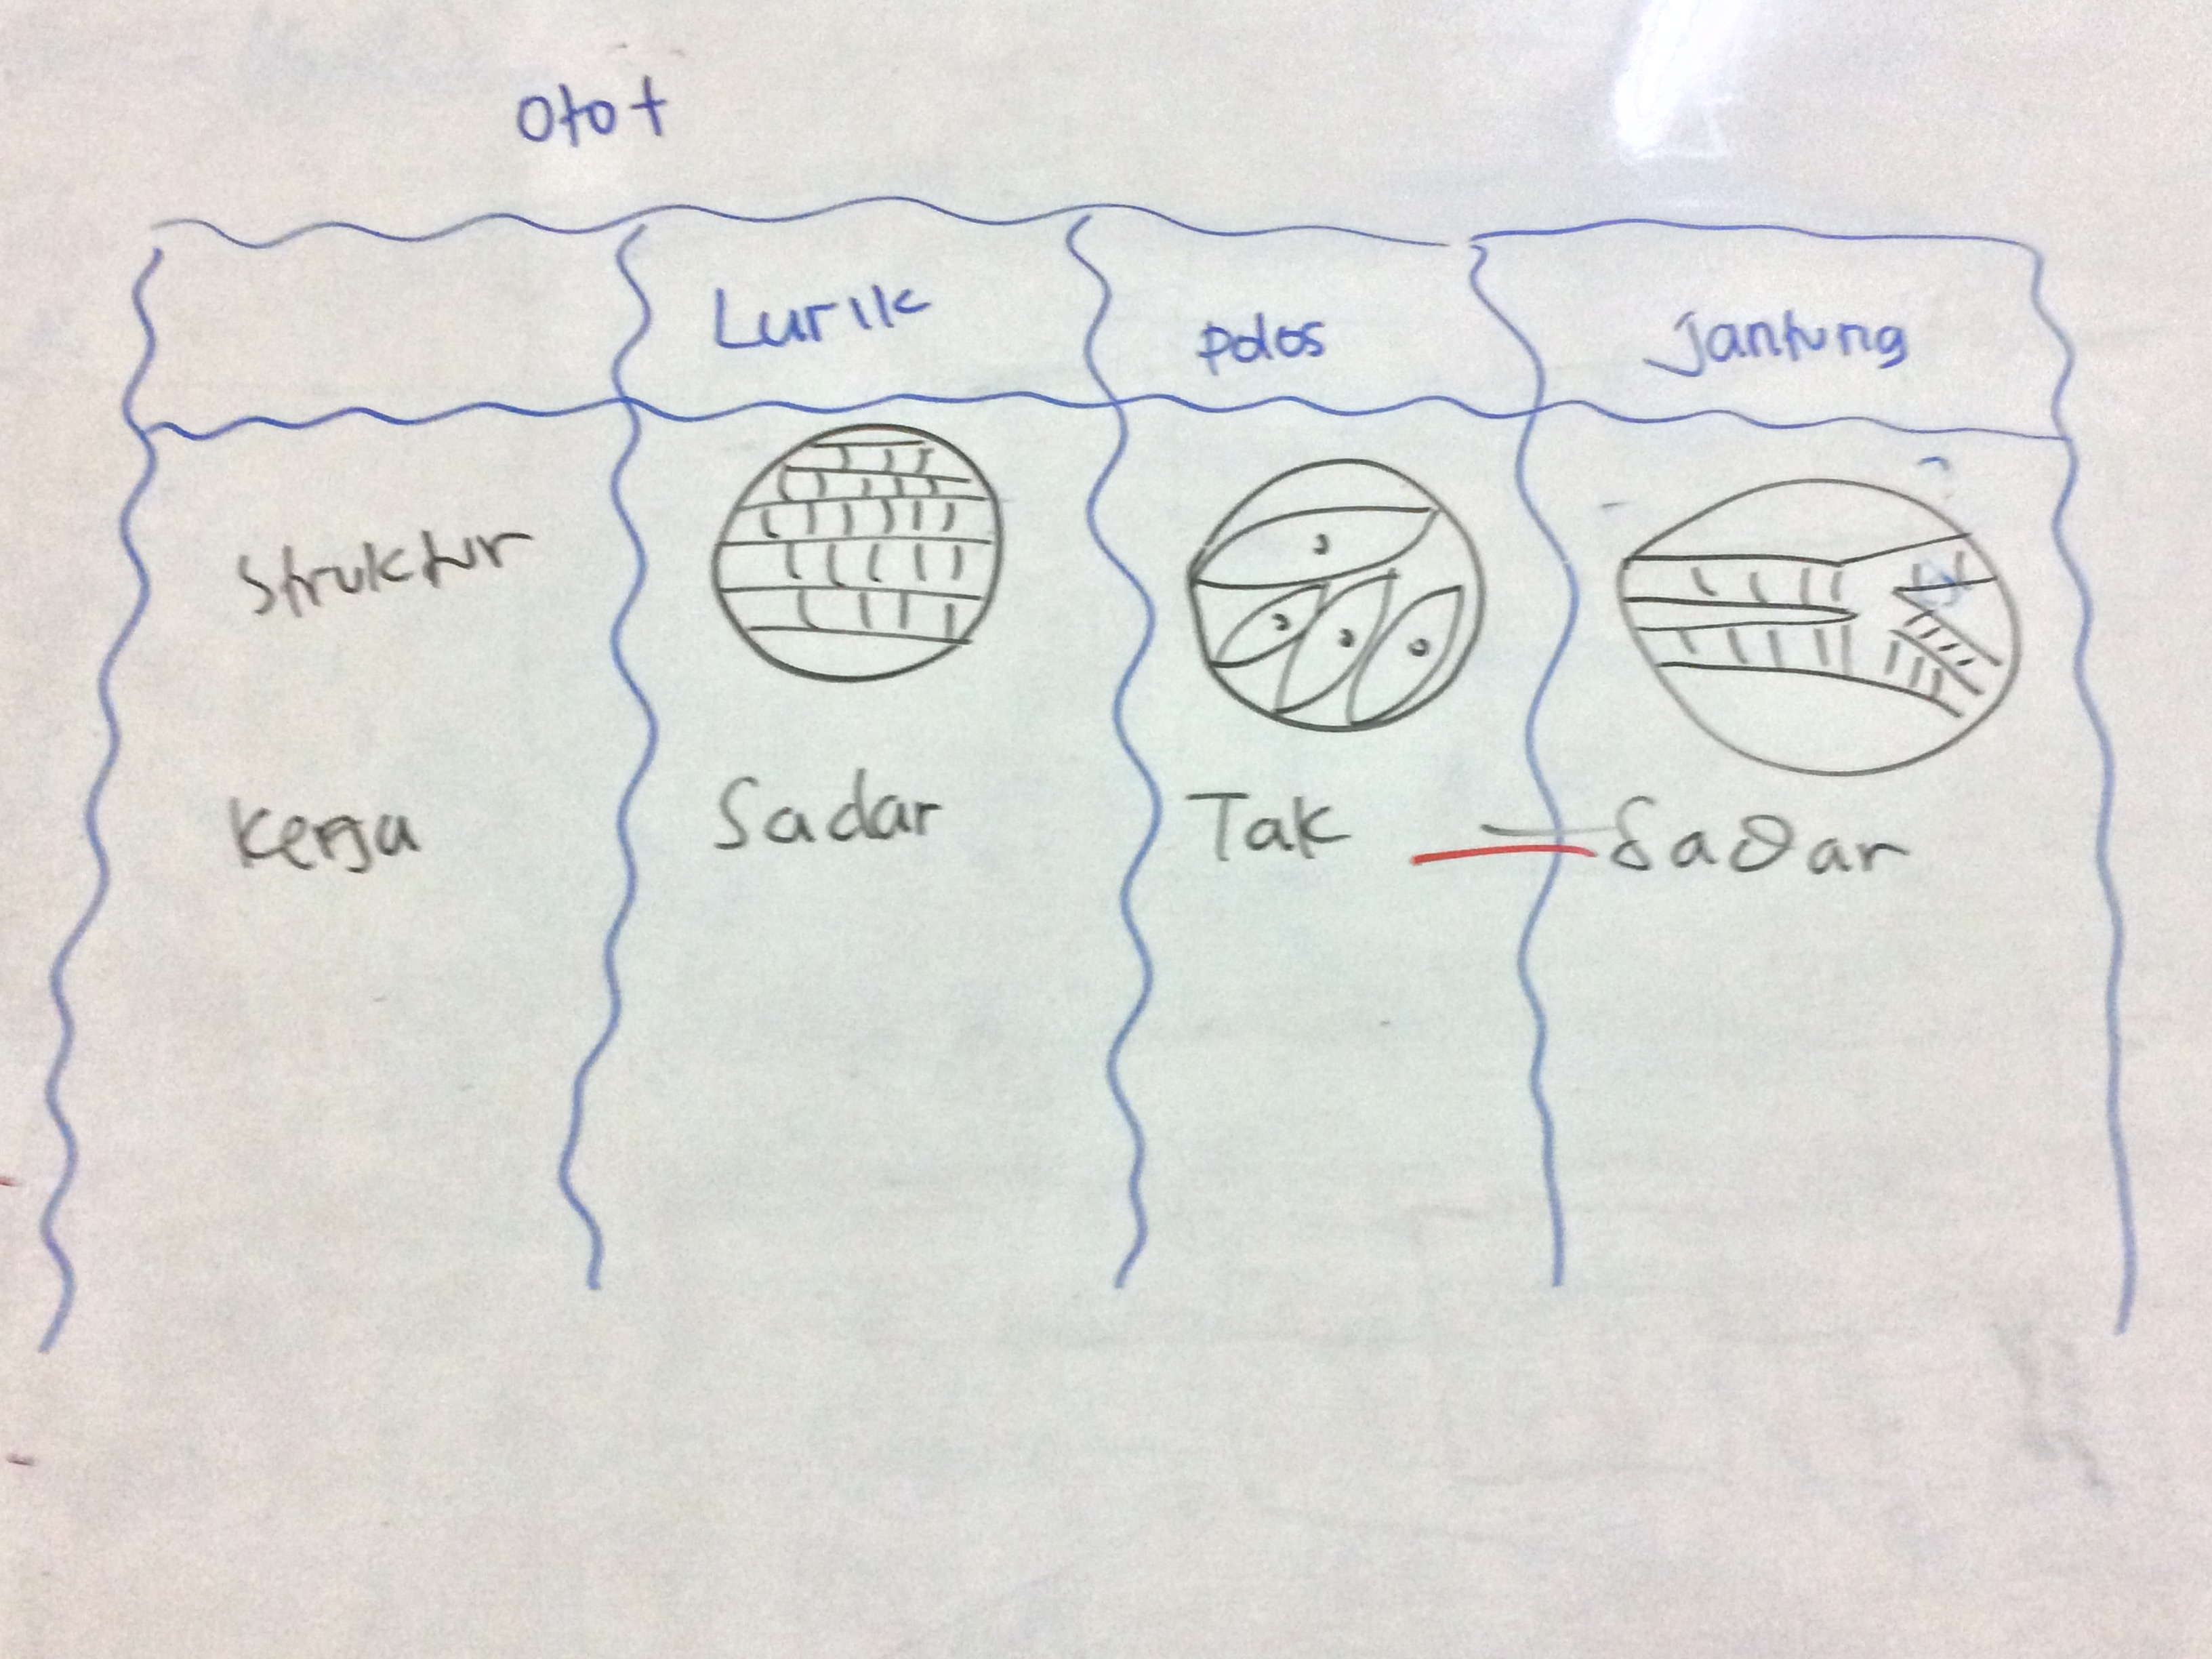 Otot
Lurik polos Jantung
Struktur
Kerja Sadar Tak Sadar